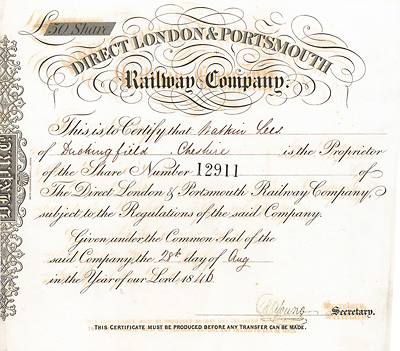 £50 Share
DIRECT LONDON & PORTSMOUTH
Railway Company.
This is to Certify that Lees
of Duckingfield Cheshire is the Proprietor
of the Share Number 12911 of
The Direct London & Portsmouth Railway Company,
subject to the Regulations of the said Company.
Given under the Common Seal of the
said Company, the 28th day of Aug
in the Year of our Lord 1846
Young Secretary.
THIS CERTIFICATE MUST BE PRODUCED BEFORE ANY TRANSFER CAN BE MADE.